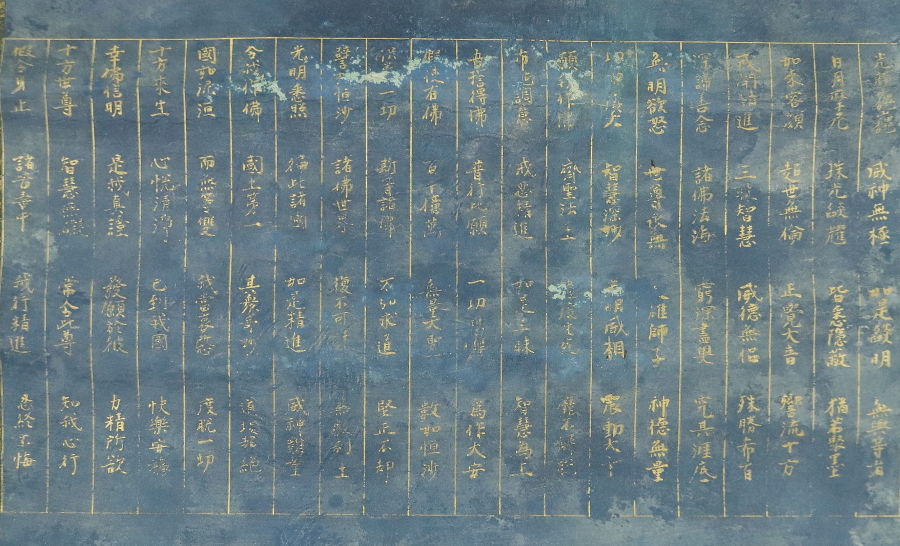 威神無極 如是燄明 無與等者
日月摩尼 珠光燄耀 皆悉隱蔽 猶若聚墨
如来容顔 超世無倫 正覺大音 響流十方
戒聞精進 三昧智慧 威德無侣 殊勝希有
深諦善念 諸佛法海 窮深盡奥 究其涯底
無明欲怒 世尊永無 人雄師子 神德無量
廣大 智慧深妙 光明威相 震動大千
願我作佛 齊聖法王 生死 靡不解脱
布施調意 戒忍精進 如是三昧 智慧爲上
吾誓得佛 普行此願 一切恐懼 爲作大安
假使有佛 百千億萬 無量大聖 數如恒沙
一切 斯等諸佛 不如求道 堅正不却
譬如恒沙 諸佛世界 復不可計 無數刹土
光明悉照 徧此諸國 如是精進 威神難量
令我作佛 國土第一 其衆奇妙 道場超絶
國如泥洹 而無等雙 我當哀愍 度脱一切
十方来生 心悦清淨 已到我國 快樂安穩
幸佛信明 是我真證 發願於彼 力精所欲
十方世尊 智慧無礙 常令此尊 知我心行
假令身止 諸苦毒中 我行精進 忍終不悔